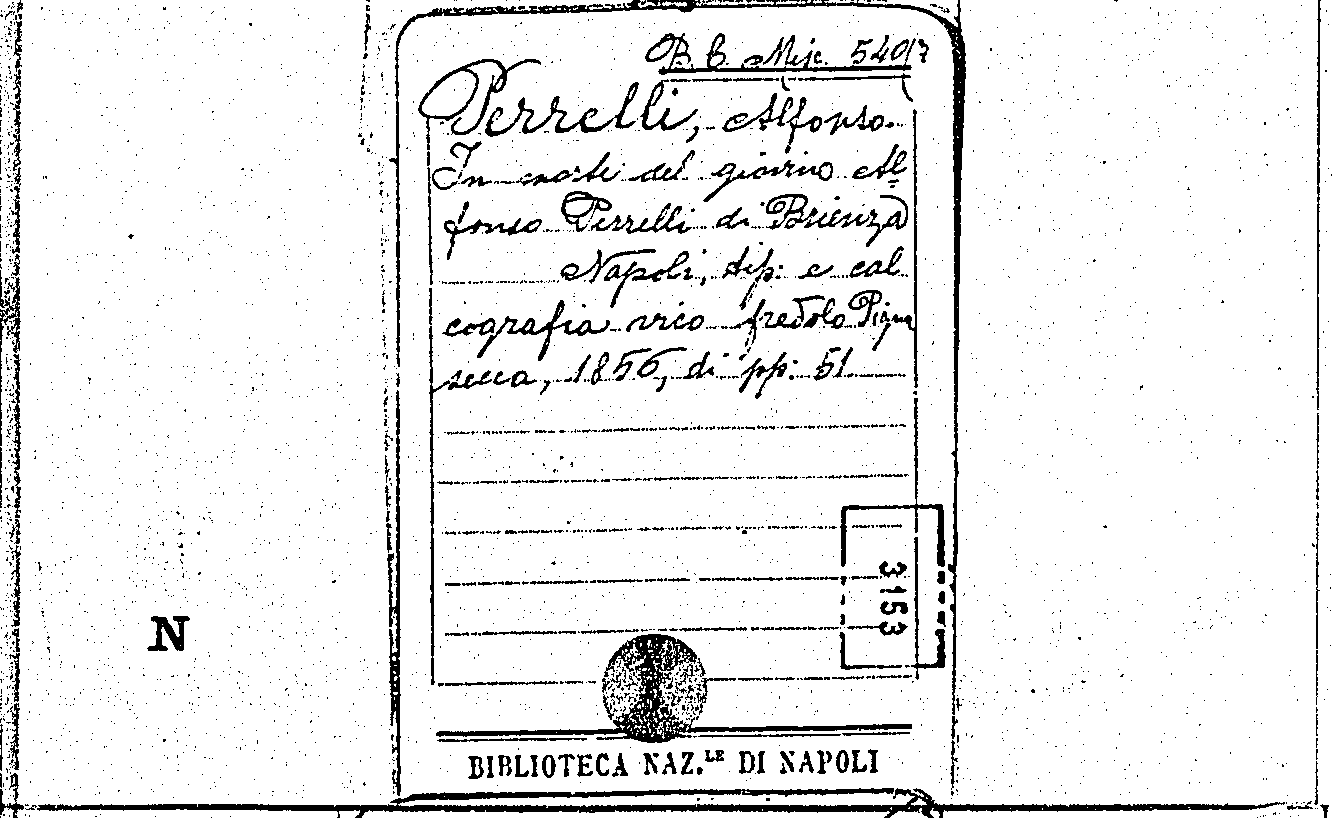 B. B. Misc. 540(7
Perrelli, Alfonso.
In morte del giovine Al=
fonso Perrelli di Brienza
Napoli, tip: e cal
cografia vico freddo Pigna
secca, 1856, di pp: 51
3153
N
BIBLIOTECA NAZ.LE DI NAPOLI